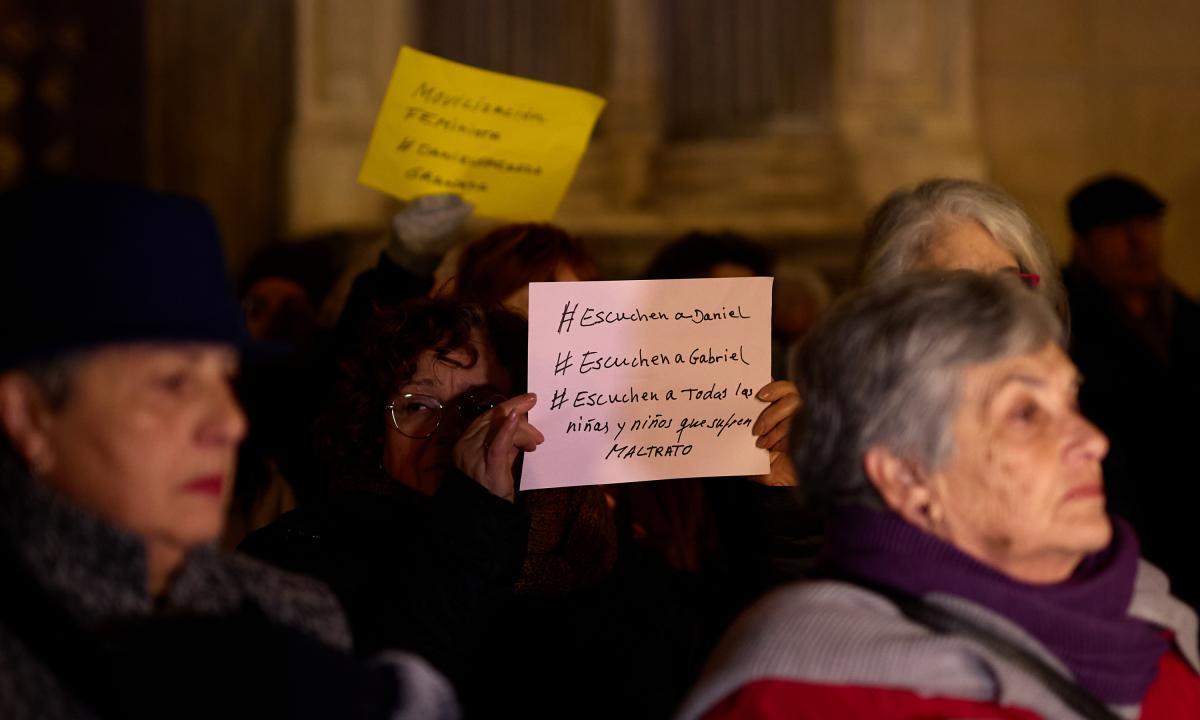 MOVILIZACIÓN
FEMINISTA
GRANADA
#Escuchen a Daniel
#Escuchen a Gabriel
#Escuchen a Todas las
niñas y niños que sufren
MALTRATO